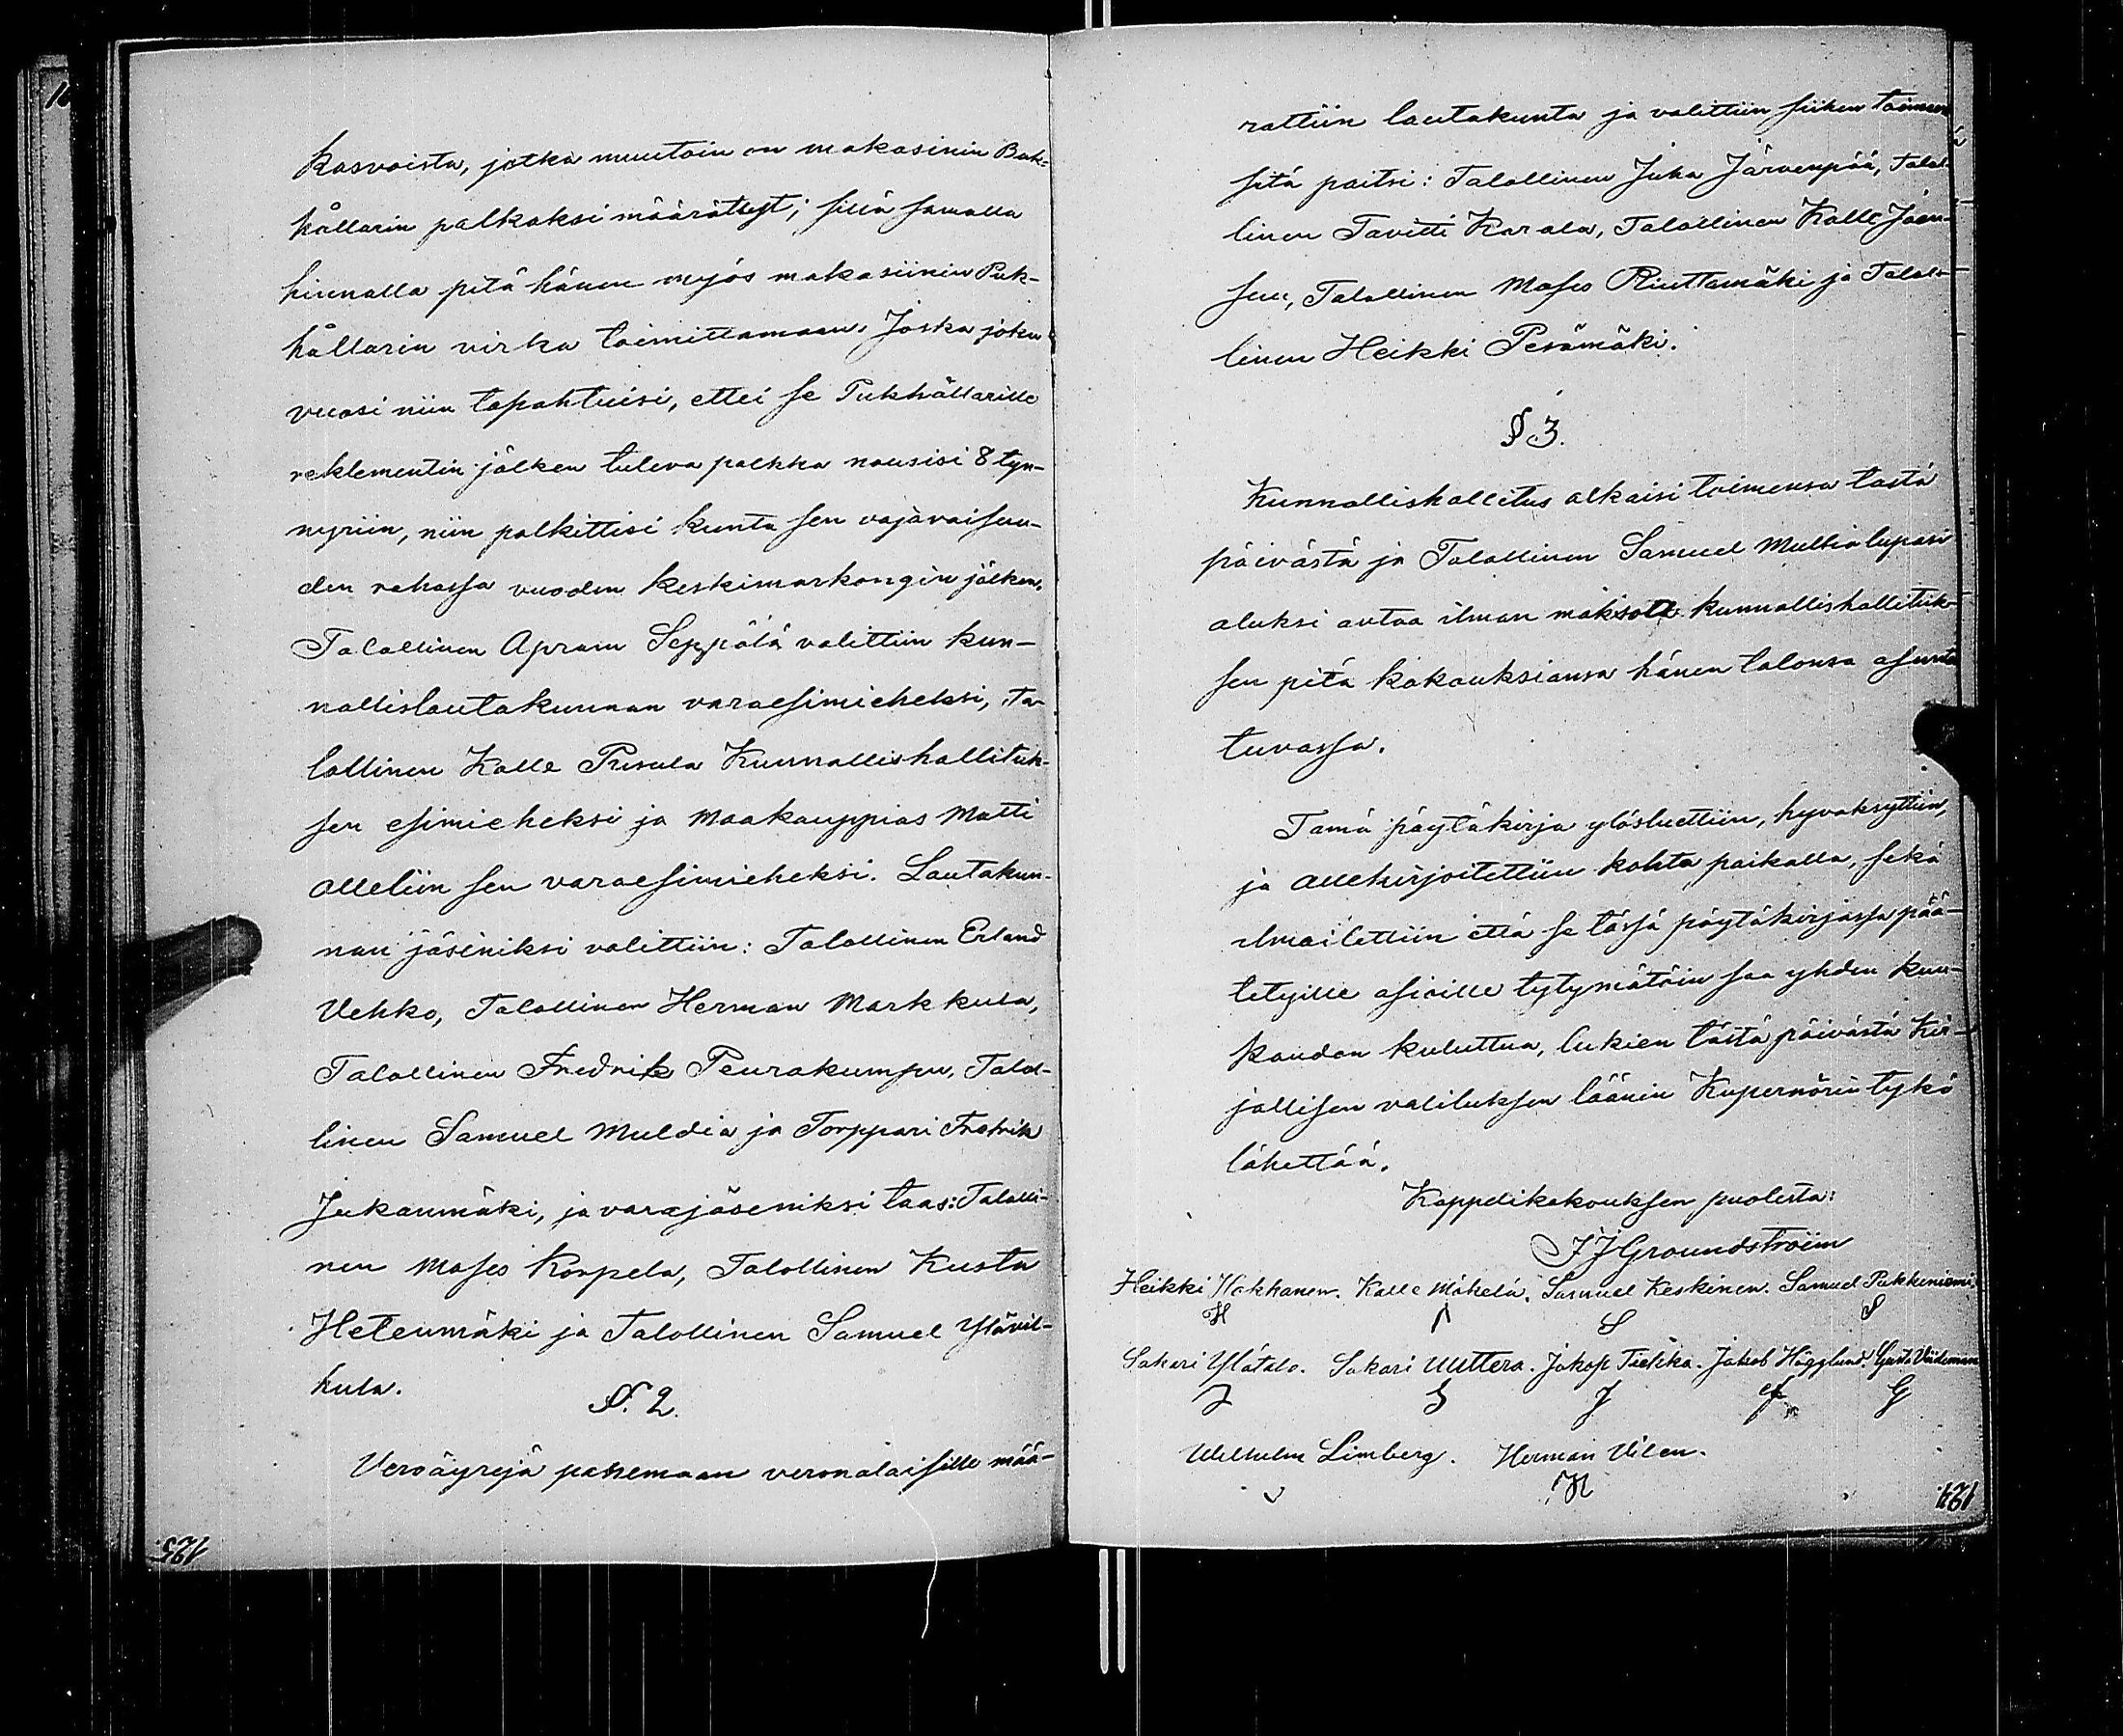 kasvoista, jotka muutoin on makasinin Buk-
hållarin palkaksi määrätyt; sillä samalla
hinnalla pitä hänen myös makasiinin Puk-
hållarin virka toimittamaan. Joska joku
vuosi niin tapahtuisi, ettei se Pukhållarille
reklementin jälken tuleva palkka nousisi 8 tyn-
nyriin, niin palkittisi kunta sen vajavaisuu-
den rahassa vuoden keskimarkangin jälken.
Talollinen Apram Seppälä valittiin kun-
nallislautakunnan varaesimieheksi, ta-
lollinen Kalle Pusula Kunnallishallituk-
sen esimieheksi ja Maakauppias Matti
Alleliin sen varaesimieheksi. Lautakun-
nan jäseniksi valittiin: Talollinen Erland
Vehko, Talollinen Herman Markkula,
Talollinen Fredrik Peurakumpu, Talol-
linen Samuel Muldia ja Torppari Fredrik
Jukanmäki, ja varajäseniksi taas: Talolli-
nen Moses Korpela, Talollinen Kusta
Hetenmäki ja Talollinen Samuel Ylävil-
kula.
§. 2.
Veroäyrejä panemaan veronalaisille mää-
125
rattiin lautakunta ja valittiin siihen toimeen
sitä paitsi: Talollinen Juha Järvenpää, Talol-
linen Tavitti Karala, Talollinen Kalle Joen-
suu, Talollinen Moses Riuttamäki ja Talol-
linen Heikki Perämäki.
§ 3.
Kunnallishallitus alkaisi toimensa tästä
päivästä ja Talollinen Samuel Multia lupasi
aluksi antaa ilman maksota kunnallishallituk-
sen pitä kokouksiansa hänen talonsa asunto
tuvassa.
Tämä pöytäkirja ylösluettiin, hyvaksyttiin,
ja allekirjoitettiin kohta paikalla, sekä
ilmoitettiin että se tässä pöytäkirjassa pää-
tetyille asioille tytymätöin saa yhden kuu-
kauden kuluttua, lukien tästä päivästä Kir-
jallisen valituksen läänin Kupernörin tykö
lähettää.
Kappelikokouksen puolesta:
J J Groundstroim
Heikki Hokkanen. Kalle Mäkelä. Samuel Keskinen. Samuel Pukkiniemi.
H S S
Sakari Ylätalo. Sakari Uuttera. Jakop Tiekka. Jakob Högglund. Gusta Viideman
S J G
Wilhelm Limberg. Herman Vilen.
H
124